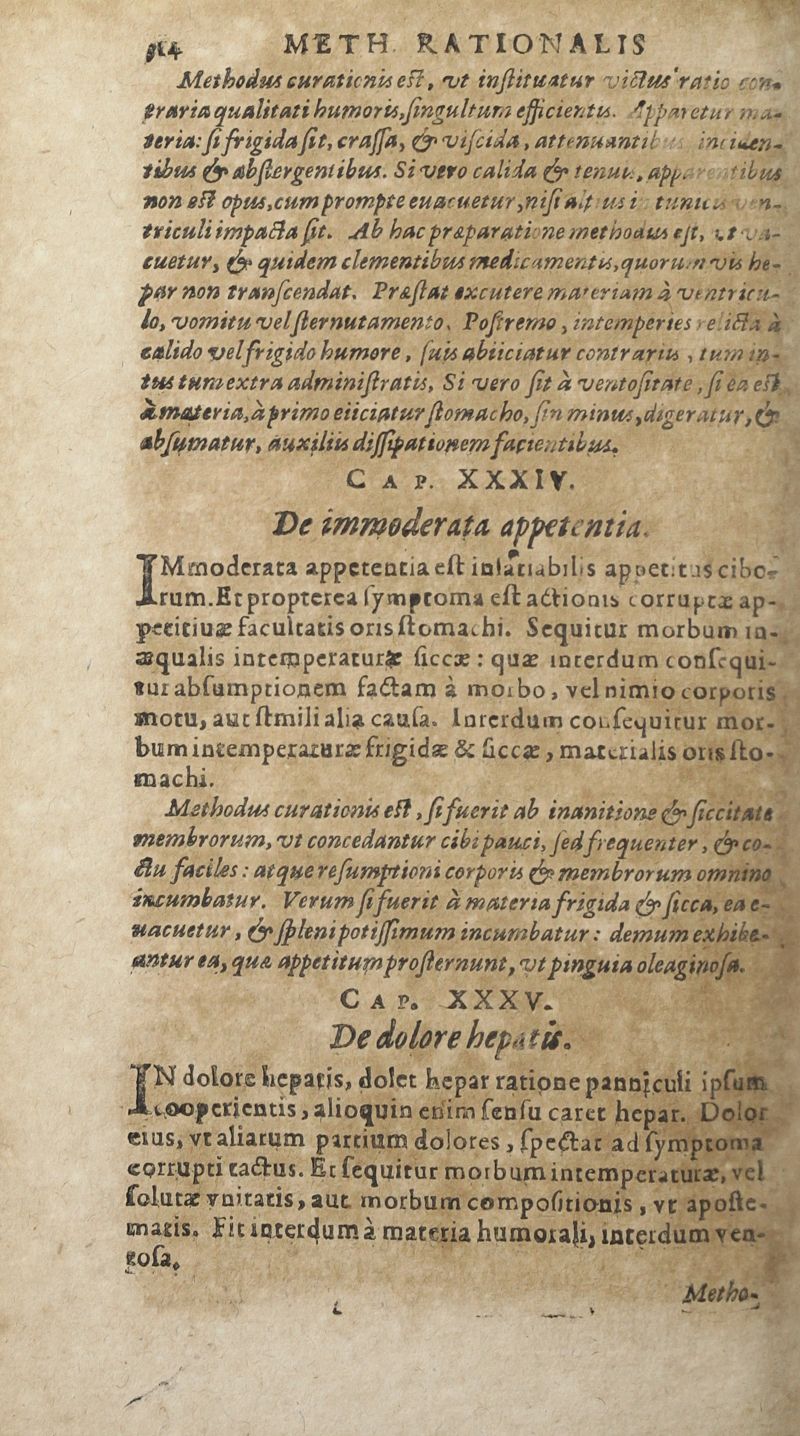 METH. RATIONALIS
Methodus curationis est, vt instituatur victus ratio con-
traria qualitati humoris, singultum efficientis. Apparetur ma-
teria: si frigida sit, crassa, & viscida, attenuantibus inciden-
tibus & abstergentibus. Si vero calida & tenuis, apparentibus
non est opus, cum prompte euacuetur, nisi
triculi impacta sit. Ab hac præparatione methodus est, vt va-
cuetur, & quidem clementibus medicamentis, quorum vis he-
par non transcendat. Præstat excutere materiam à ventricu-
lo, vomitu vel sternutamento. Postremo, intemperies relicta à
calido vel frigido humore, suis abiiciatur contrariis, tum in-
tus tum extra administratis, Si vero sit à ventositate, si ea est
à materia, à primo eiiciatur stomacho, sin minus, digeratur, &
absumatur, auxiliis dissipationem facientibus.
CAP. XXXIV.
De immoderata appetentia.
IMmoderata appetentia est insatiabilis appetitus cibo-
rum. Et propterea symptoma est actionis corruptæ ap-
petitiuæ facultatis oris stomachi. Sequitur morbum in-
æqualis intemperaturæ siccæ: quæ interdum consequi-
tur absumptionem factam à morbo, vel nimio corporis
motu, aut simili alia causa. Interdum consequitur mor-
bum intemperaturæ frigidæ & siccæ, materialis oris sto-
machi.
Methodus curationis est, si fuerit ab inanitione & siccitate
membrorum, vt concedantur cibi pauci, sed frequenter, & co-
ctu faciles: atque resumptioni corporis & membrorum omnino
incumbatur. Verum si fuerit à materia frigida & sicca, ea e-
uacuetur, & spleni potissimum incumbatur: demum exhibe-
antur ea, quæ appetitum prosternunt, vt pinguia oleaginosa.
CAP. XXXV.
De dolore hepatis.
IN dolore hepatis, dolet hepar ratione panniculi ipsum
cooperientis, alioquin enim sensu caret hepar. Dolor
eius, vt aliarum partium dolores, spectat ad symptoma
corrupti tactus. Et sequitur morbum intemperaturæ, vel
solutæ vnitatis, aut morbum compositionis, vt aposte-
matis. Fit interdum à materia humorali, interdum ven-
tosa.
Metho-